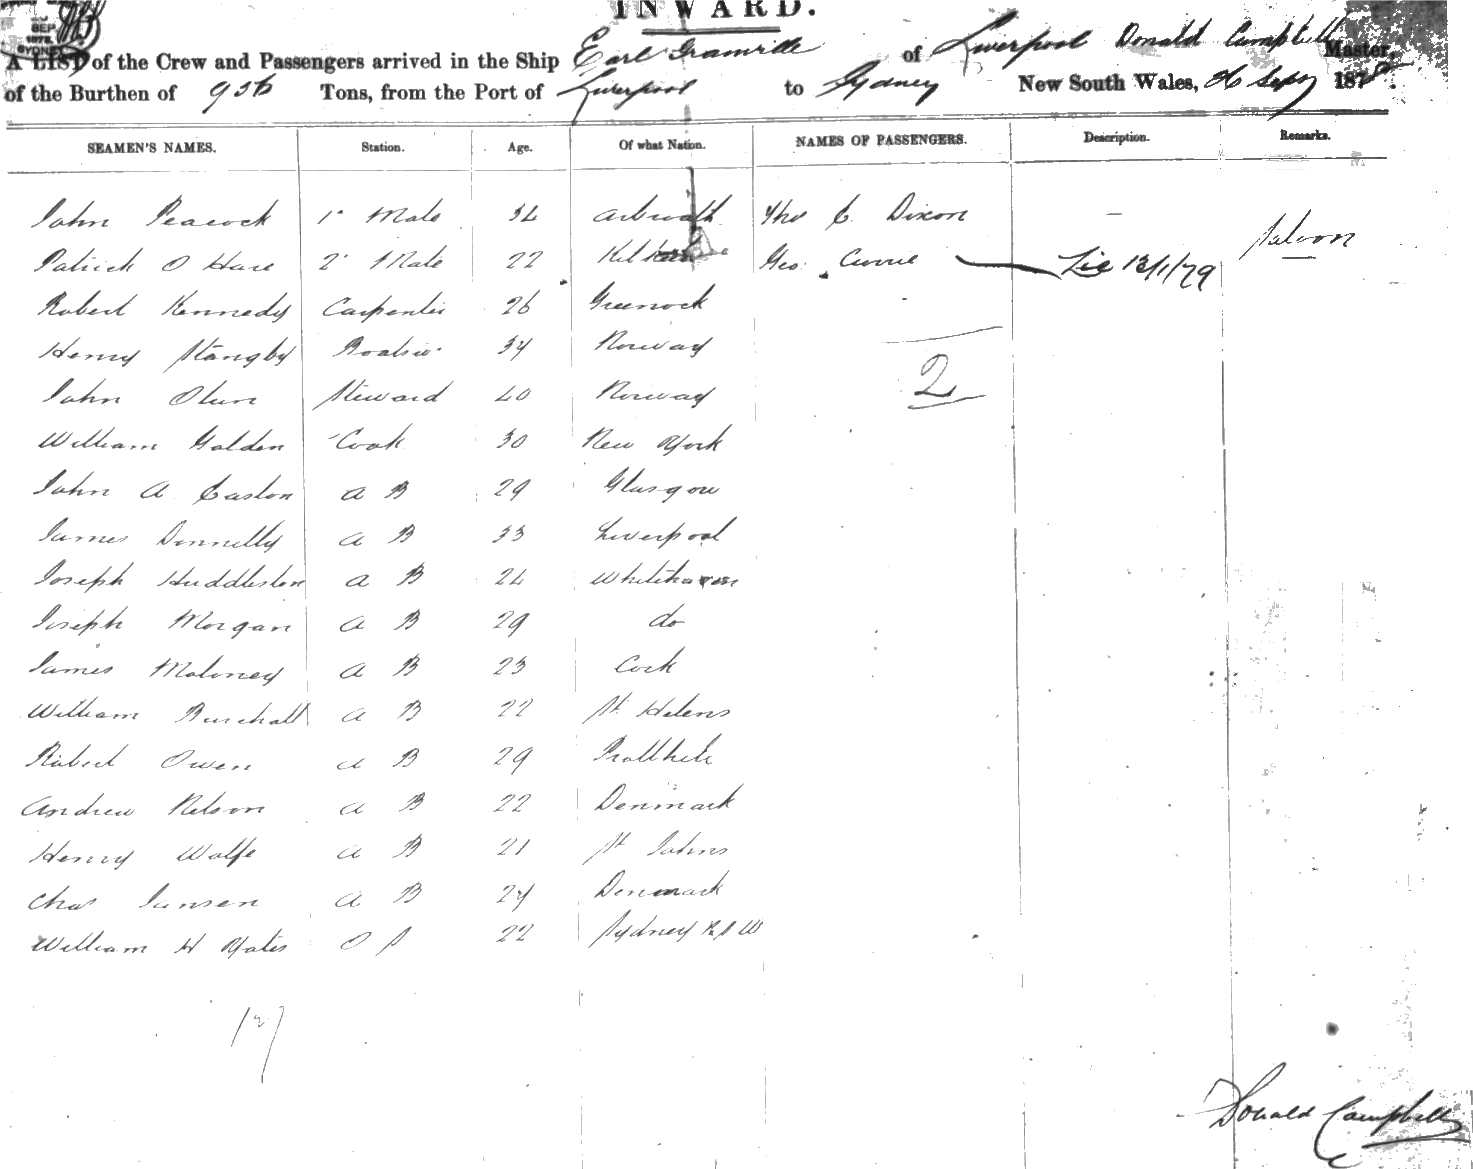 INWARD.
SEP
1878
SYDNEY
A LIST of the Crew and Passengers arrived in the Ship Earl Granville of Liverpool Donald Campbell Master,
of the Burthen of 936 Tons, from the Port of Liverpool to Sydney New South Wales, 26 Sepr 1878.
SEAMEN'S NAMES. Station. Age. Of what Nation. NAMES OF PASSENGERS. Description. Remarks.
John Peacock 1st Mate 34 Arbroath Thos C. Dixon – Saloon
Patrick O Hare 2d Mate 22 Geo. Currie Lic 13/1/79
Robert Kennedy Carpenter 26 Greenock
Henry Stangby 34 Norway
John Olsen Steward 40 Norway 2
William Golden Cook 30 New York
John A Caston A B 29 Glasgow
James Donnelly A B 33 Liverpool
Joseph Huddleston A B 24 Whitehaven
Joseph Morgan A B 29 do
James Moloney A B 23 Cork
William Burchall A B 22 St Helens
Robert Owen A B 29
Andrew Nelson A B 22 Denmark
Henry Wolfe A B 21 St Johns
Chas Jansen A B 24 Denmark
William H Yates O S 22 Sydney N S W
17
Donald Campbell